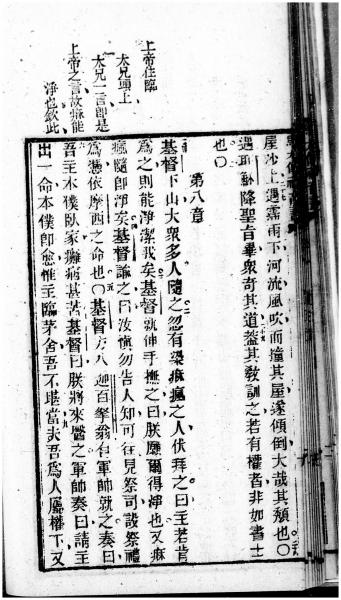 上帝住臨
太兄頭上
太兄一言即是
上帝之言故癩能
淨也欽此
屋沙上遇霪雨下河流風吹而撞其屋遂傾倒大哉其頹也〇
遇耶穌降聖旨畢衆奇其道蓋其教訓之若有權者非如書士
也〇
第八章
基督下山大衆多人隨之忽有染痲瘋之人伏拜之曰主若肯
爲之則能淨潔我矣基督就伸手撫之曰朕願爾得淨也又痲
瘋隨即淨矣基督諭之曰汝愼勿告人知可往見祭司設祭禮
爲憑依摩西之命也〇基督方入迦百拿翁有軍帥就之奏曰
吾主本僕臥家癱病甚苦基督曰朕將來醫之軍帥奏曰請主
出一命本僕即愈惟主臨茅舍吾不堪當夫吾爲人屬權下又